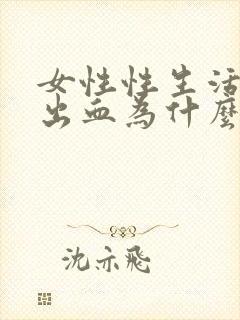 女性性生活
出血為什麼
沈亦飛